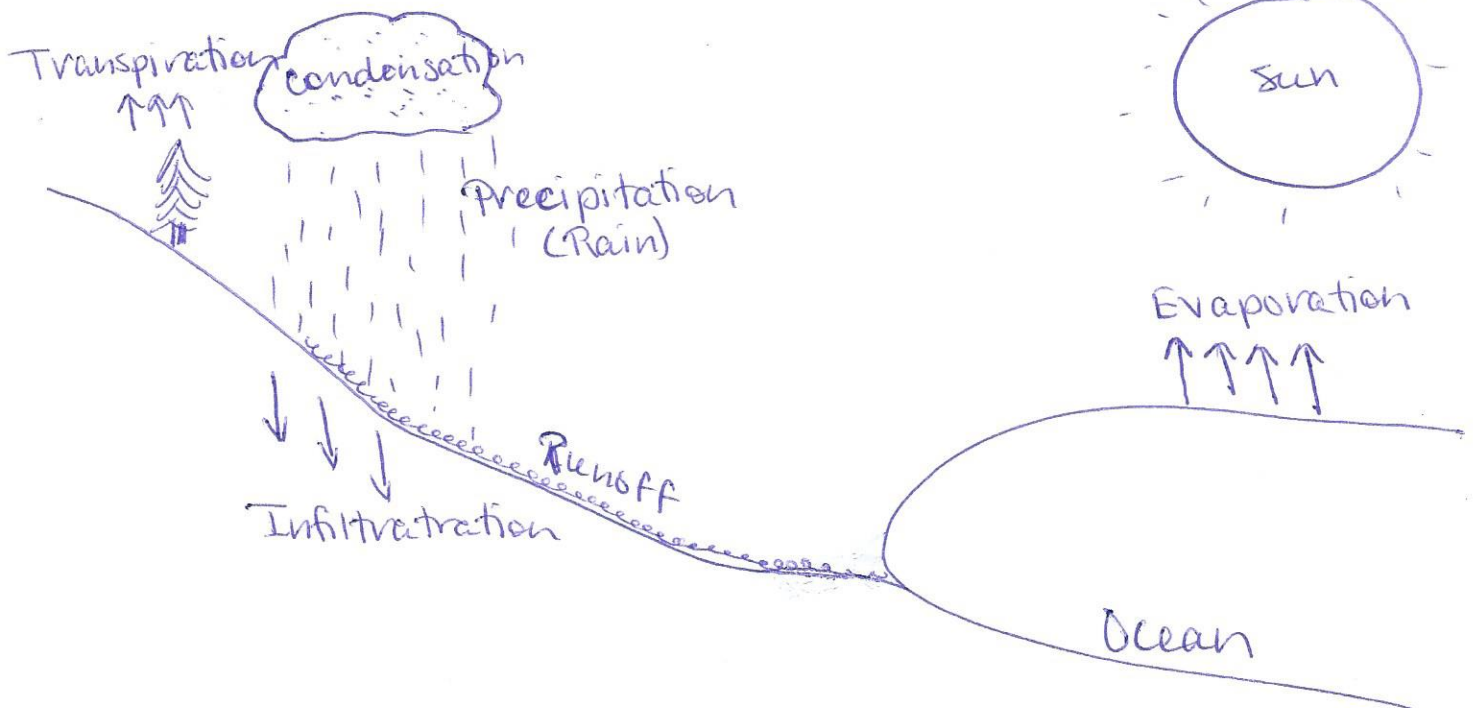 Transpiration
condensation
Sun
Precipitation
(Rain)
Evaporation
Runoff
Infiltratration
Ocean